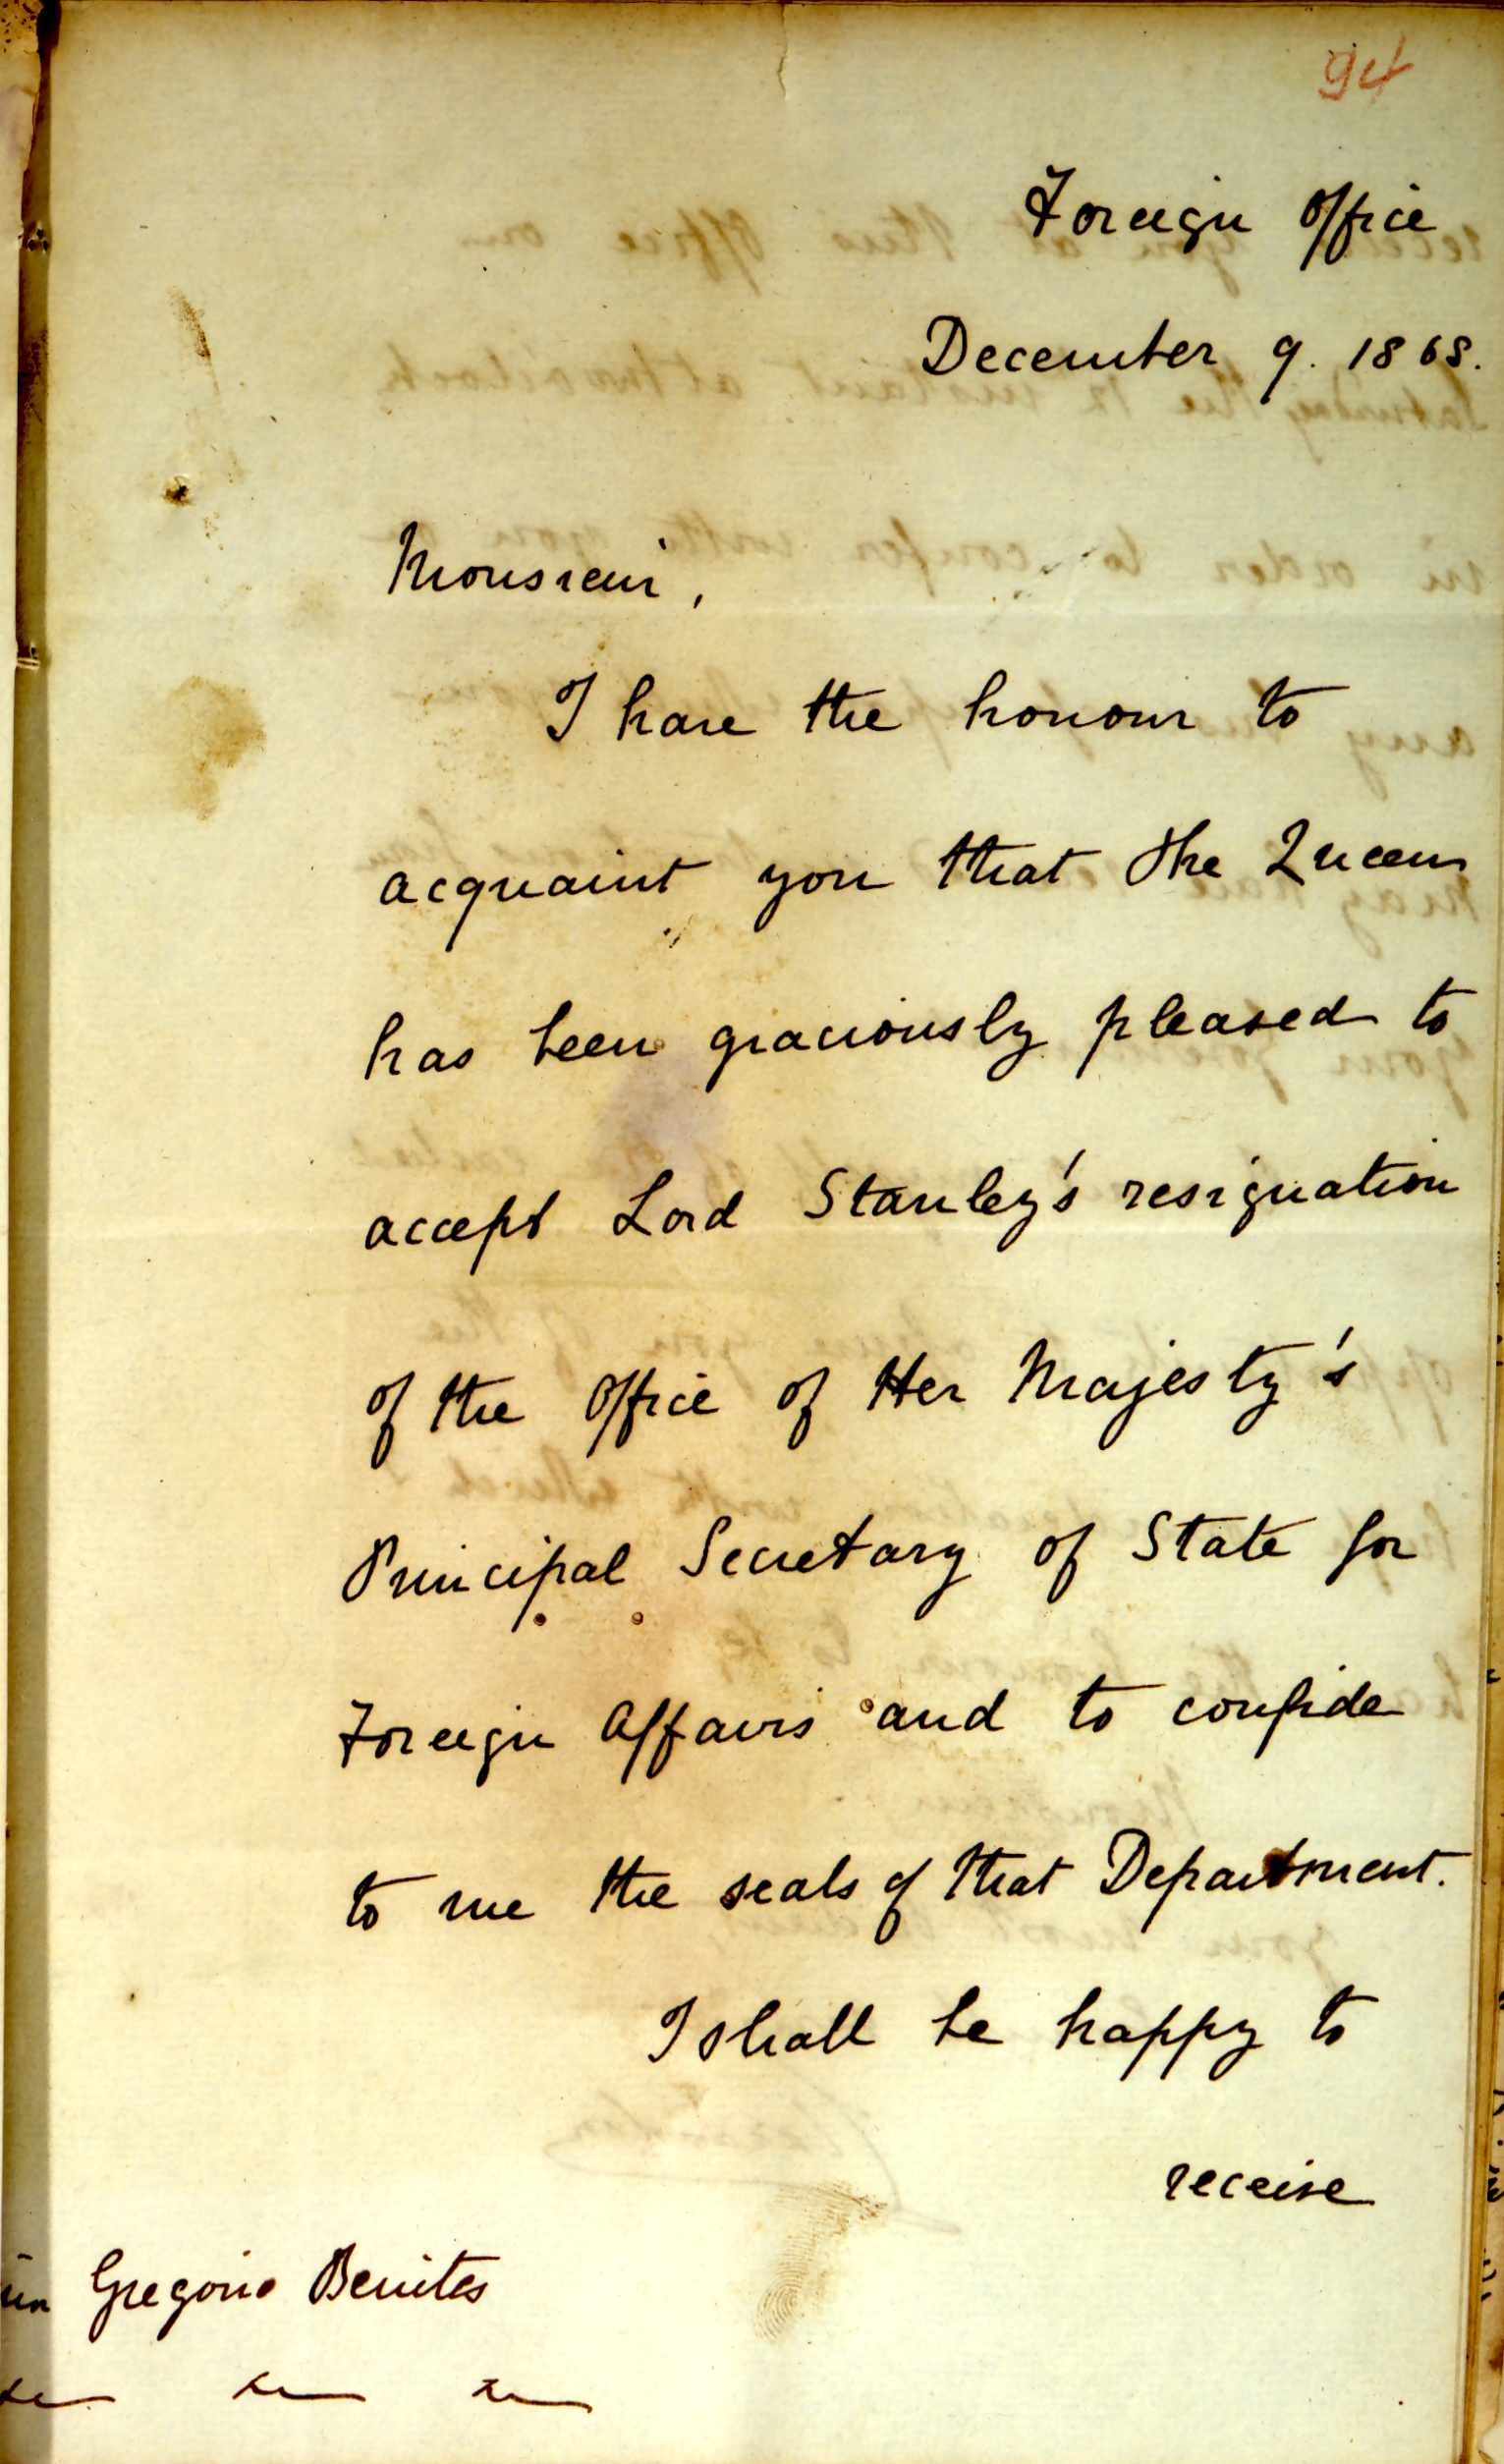 94
Foreign Office
December 9. 1868.
Monsieur,
I have the honour to
acquaint you that The Queen
has been graciously pleased to
accept Lord Stanley's resignation
of the Office of Her Majesty's
Principal Secretary of State for
Foreign Affairs and to confide
to me the seals of that Department.
I shall be happy to
receive
Gregorio Benites